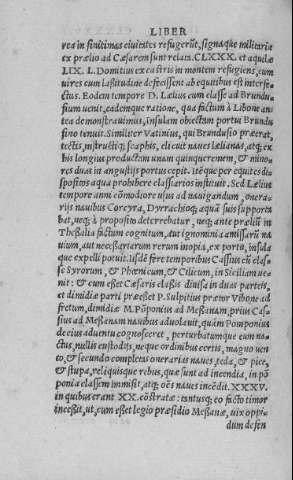 LIBER
rea in finitimas ciuitates refugerūt, signaque militaria
ex prælio ad Cæsarem sunt relata. CLXXX. et aquilæ
LIX. L. Domitius ex castris in montem refugiens, cum
uires eum lassitudine defecissent ab equitibus est interfe
ctus. Eodem tempore D. Lælius cum classe ad Brundu
sium uenit, eademque ratione, qua factum à Libone an
tea demonstrauimus, insulam obiectam portui Brundu
sino tenuit. Similiter Vatinius, qui Brundusio præerat,
tectis, instructisq; scaphis, elicuit naues Lælianas, atq; ex
his longius productam unam quinqueremem, & mino-
res duas in angustijs portus cepit. Itēque per equites di-
spositos aqua prohibere classiarios instituit. Sed Lælius
tempore anni cōmodiore usus ad nauigandum, onera-
rijs nauibus Corcyra, Dyrrachioq; aquā suis supporta
bat, neq; à proposito deterrebatur, neq; ante prælium in
Thessalia factum cognitum, aut ignominia amissarū na
uium, aut necessariarum rerum inopia, ex portu, insula
que expelli potuit. Iisdē fere temporibus Cassius cū clas-
se Syrorum, & Phœnicum, & Cilicum, in Siciliam ue-
nit: & cum esset Cæsaris classis diuisa in duas parteis,
et dimidiæ parti præesset P. Sulpitius prætor Vibone ad
fretum, dimidiæ M. Pōponius ad Messanam, prius Cas-
sius ad Messanam nauibus aduolauit, quàm Pomponius
de eius aduentu cognosceret, perturbatumque eum na-
ctus, nullis custodijs, neque ordinibus certis, magno uen
to, & secundo completas onerarias naues, teda, & pice,
& stupa, reliquisque rebus, quæ sunt ad incendia, in pō
poniā classem immisit, atq; oēs naues incēdit. XXXV.
in quibus erant XX. cōstratæ: tantusq; eo facto timor
incessit, ut, cum esset legio præsidio Messanæ, uix oppi-
dum defen